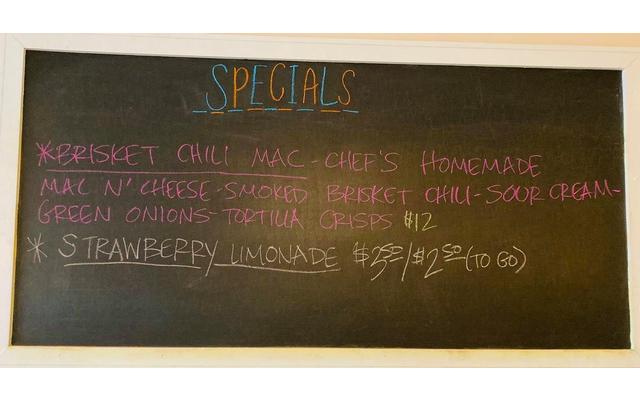 SPECIALS
*BRISKET CHILI MAC - CHEF'S HOMEMADE
MAC N' CHEESE - SMOKED BRISKET CHILI - SOUR CREAM -
GREEN ONIONS - TORTILLA CRISPS $12
* STRAWBERRY LIMONADE $3.50/$2.50 (TO GO)